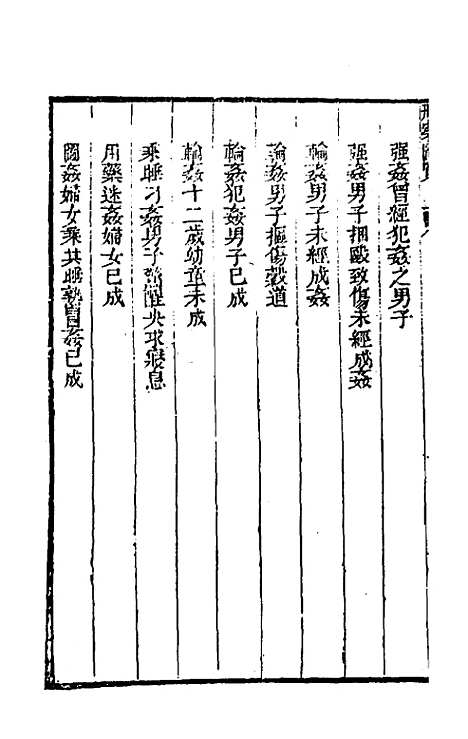 强姦曾經犯姦之男子
强姦男子捆毆致傷未經成姦
輪姦男子未經成姦
輪姦男子摳傷穀道
輪姦犯姦男子已成
輪姦十二歲幼童未成
乘睡刁姦男子驚醒央求寢息
用藥迷姦婦女已成
圖姦婦女乘其睡熟冒姦已成